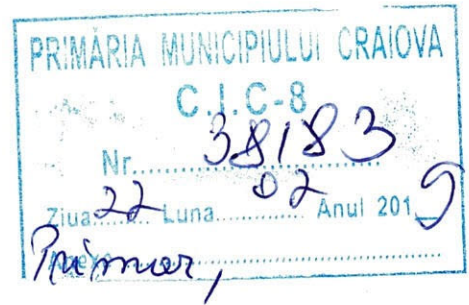 PRIMĂRIA MUNICIPIULUI CRAIOVA
C.I.C-8
Nr. 38183
Ziua 22 Luna 02 Anul 2019
Primar,